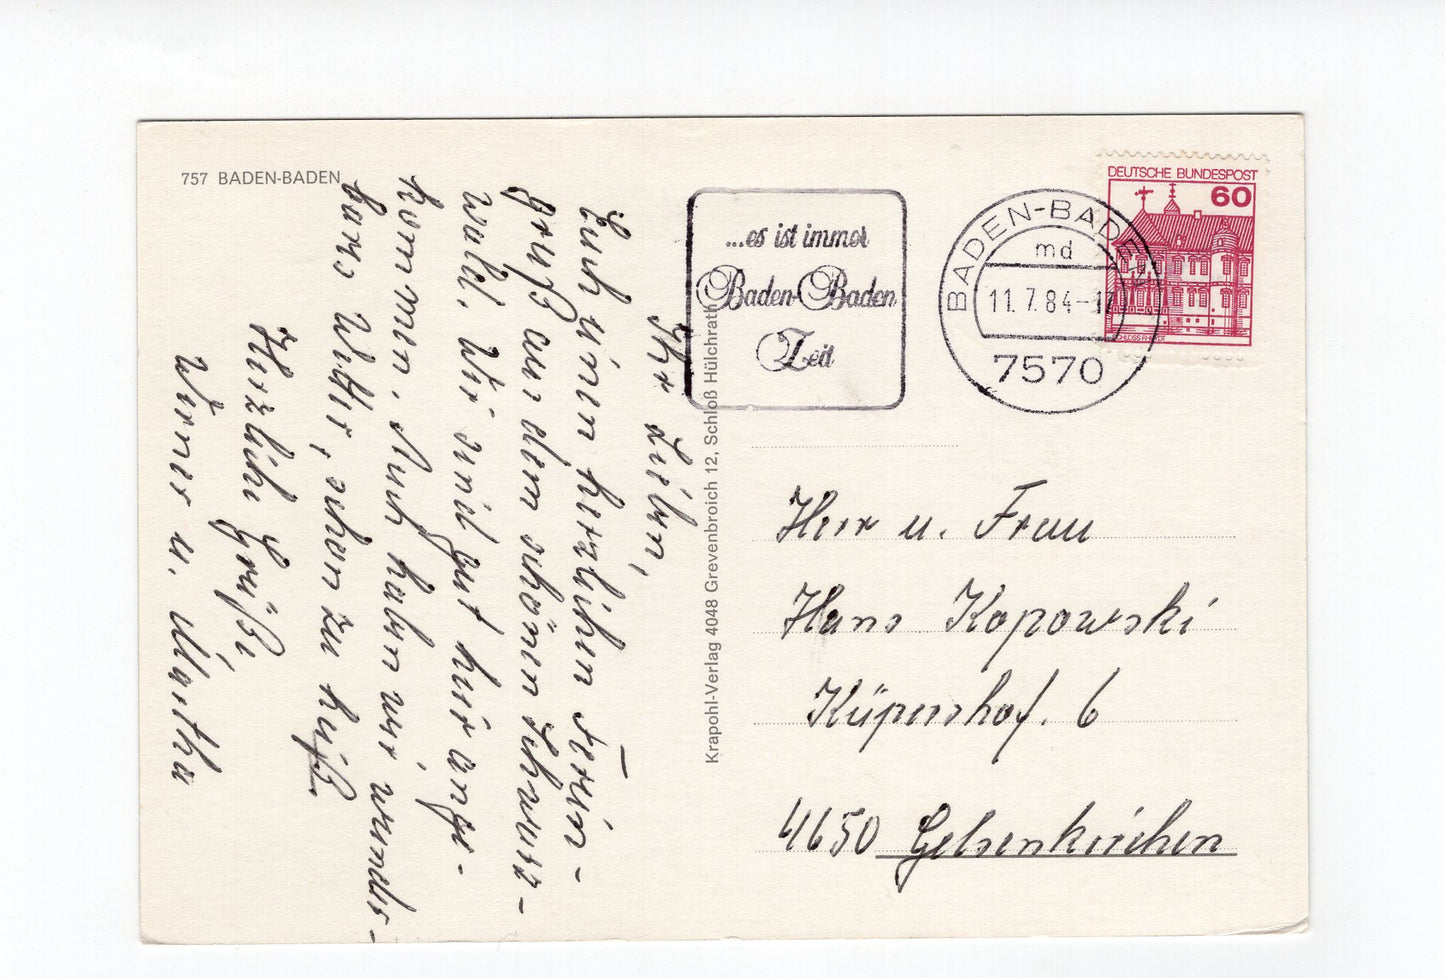 757 BADEN-BADEN
Ihr Lieben,
Euch einen herzlichen Ferien-
gruß aus dem schönen Schwarz-
wald. Wir sind gut hier ange-
kommen. Auch haben wir wunder-
bares Wetter, schon zu heiß.
Herzliche Grüße,
Werner u. Martha
Krapohl-Verlag 4048 Grevenbroich 12, Schloß Hülchrath
...es ist immer
Baden-Baden
Zeit
BADEN-BADEN
md
11.7.84-17
7570
DEUTSCHE BUNDESPOST
60
SCHLOSS RHEYDT
Herr u. Frau
Hans Kopowski
Küpershof. 6
4650 Gelsenkirchen